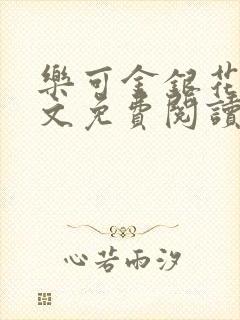 樂可金銀花
文免費閱讀
心若雨汐